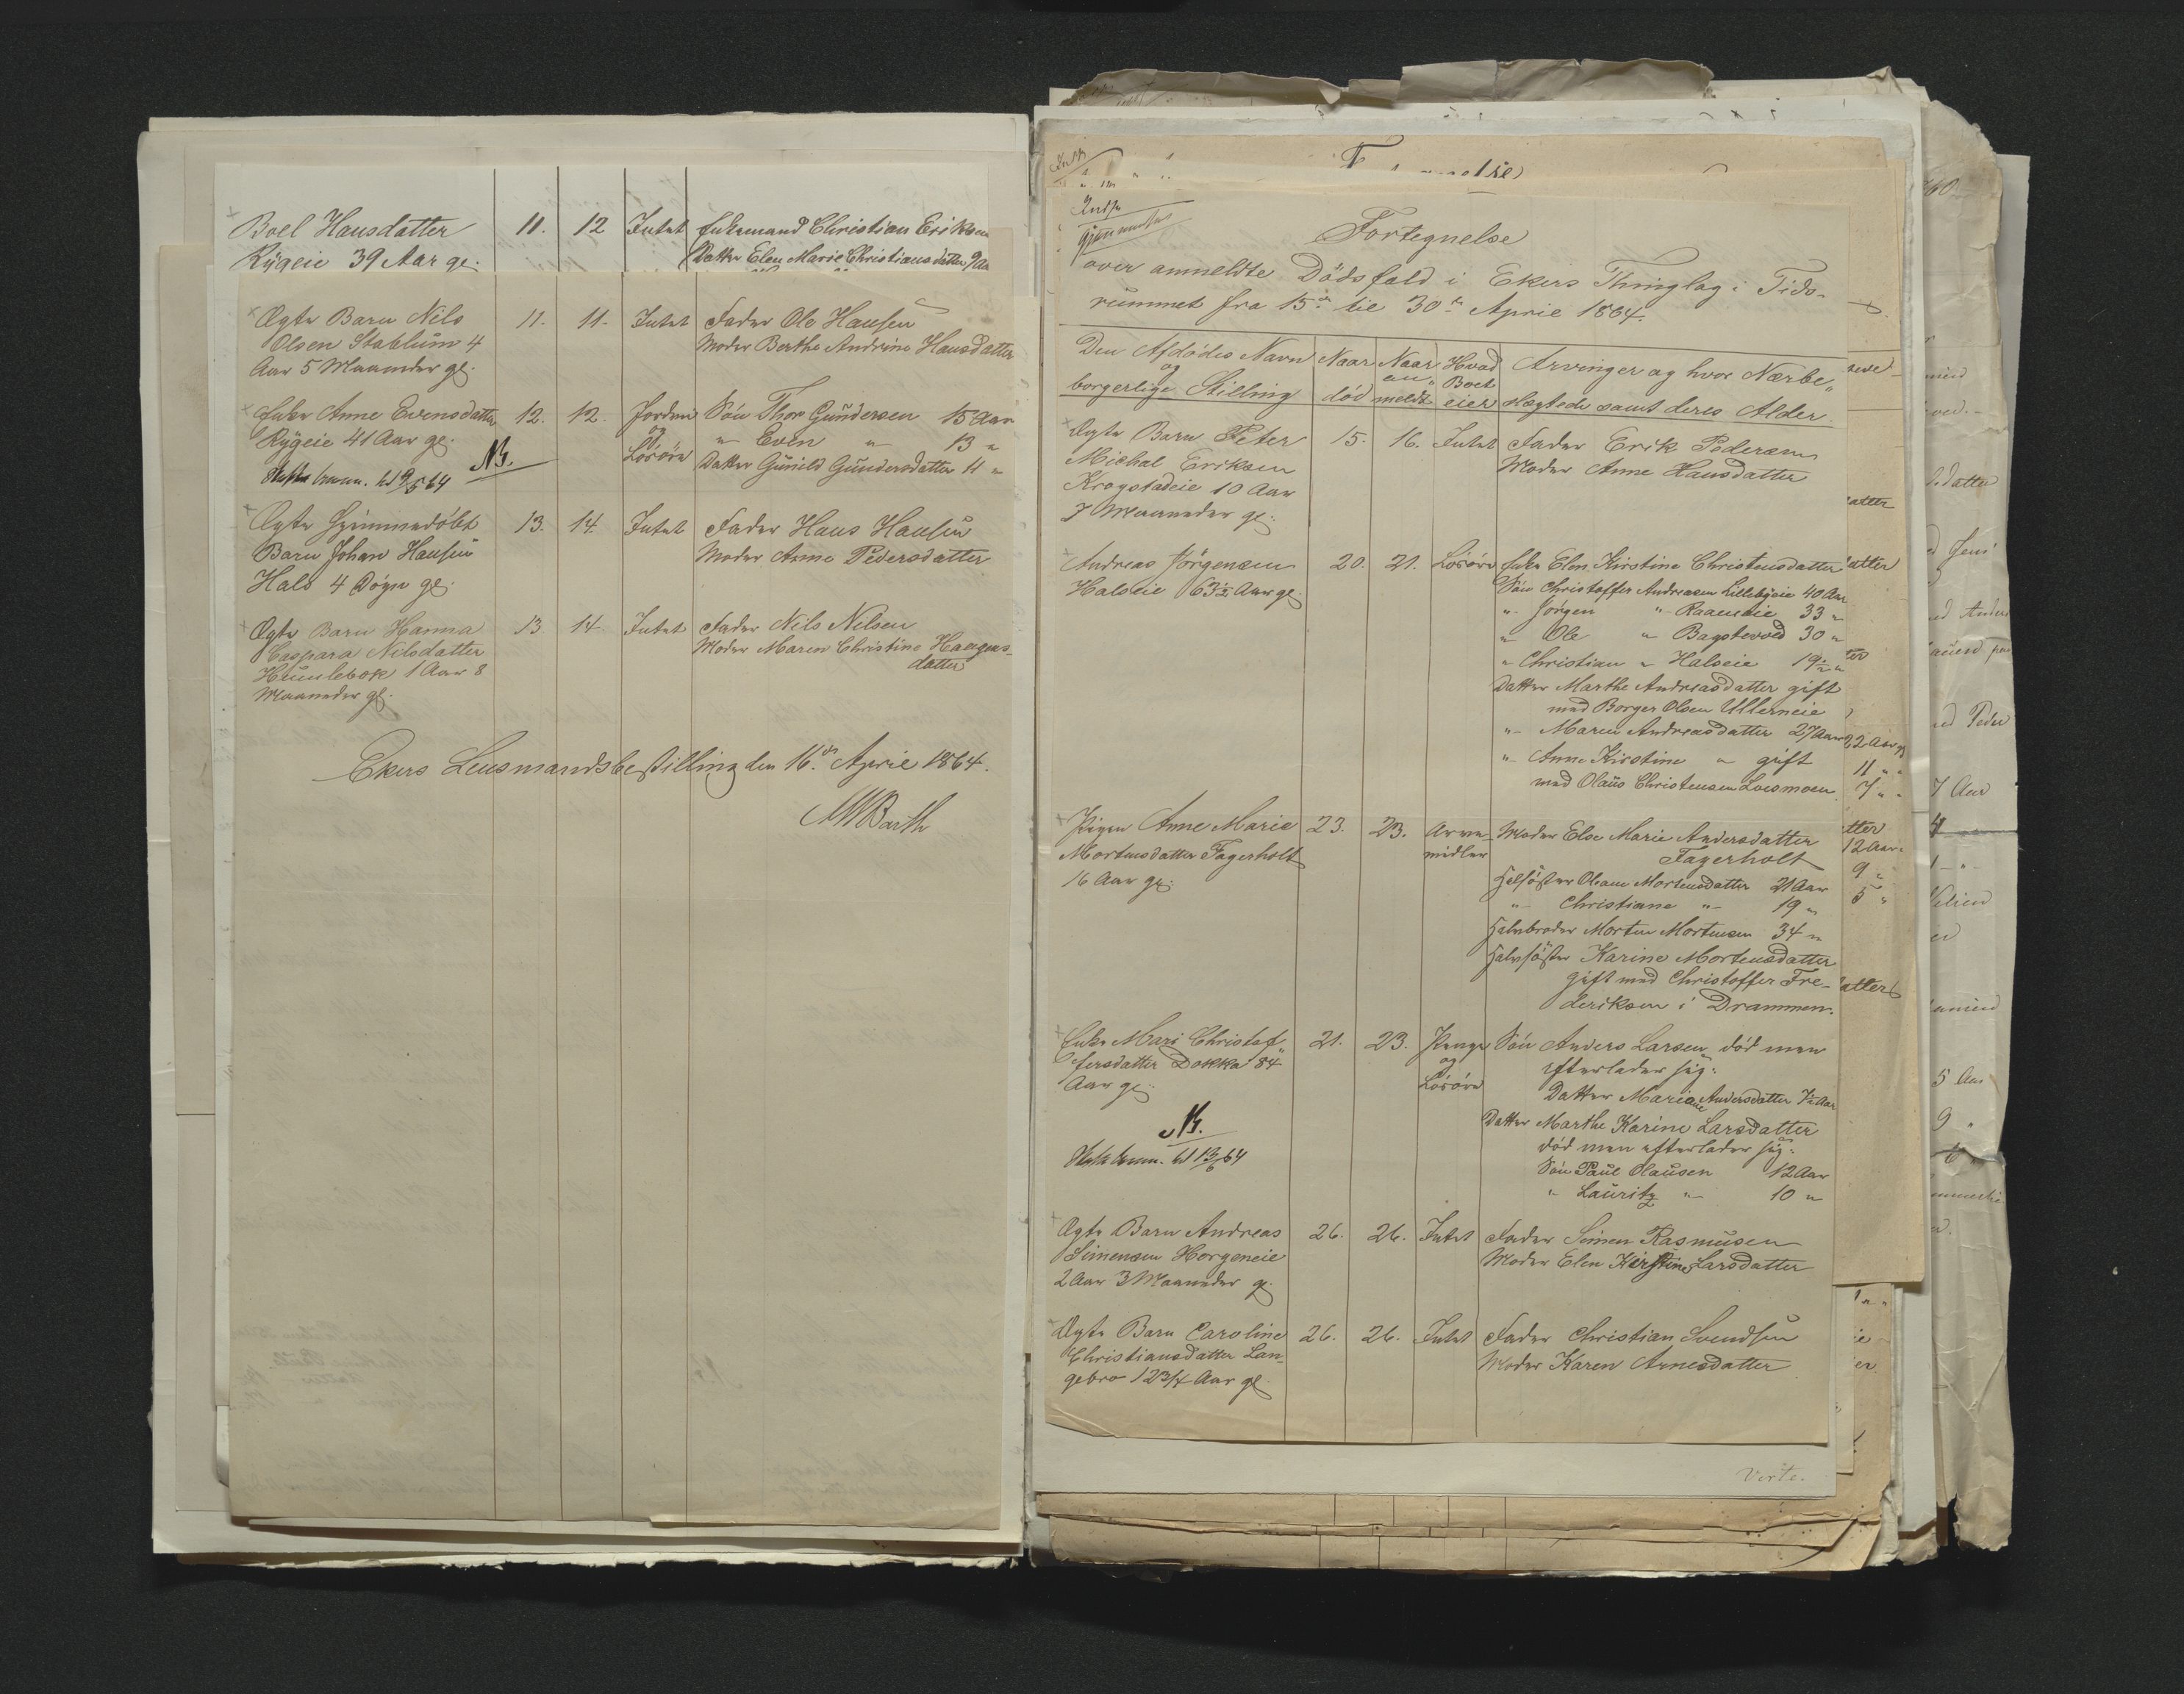 Boel Hansdatter 11. 12 Intet Enkemand Christian Eriksen
Rygeie 39 Aar gl. Datter Elen Marie Christiansdatter 9 Aar
Ægte Barn Nils 11. 11. Intet Fader Ole Hansen
Olsen Stablum 4 Moder Berthe Andrine Hansdatter
Aar 5 Maaneder gl.
Enke Anne Evensdatter 12. 12. Jorden Sön Thor Gundersen 15 Aar
Rygeie 41 Aar gl. og " Even " 13 "
NB. Lösöre Datter Gunild Gundersdatter 11 "
9/5 64
Ægte hjemmedöbt 13. 14. Intet Fader Hans Hansen
Barn Johan Hansen Moder Anne Pedersdatter
Hals 4 Dögn gl.
Ægte Barn Hanna 13 14 Intet Fader Nils Nilsen
Caspara Nilsdatter Moder Maren Christine Haagens-
Humlebæk 1 Aar 8 datter
Maaneder gl.
Ekers Lensmandsbestilling den 16de April 1864.
MWBarth
Fortegnelse
over anmeldte Dödsfald i Ekers Thinglag i Tids-
rummet fra 15de til 30te April 1864.
Den Afdödes Navn Naar Naar Hvad Arvinger og hvor Nærbe-
og an- Boet
borgerlige Stilling död meldt eier slægtede samt deres Alder.
Ægte Barn Peter 15. 16. Intet Fader Erik Pedersen
Michal Eriksen Moder Anne Hansdatter
Krogstadeie 10 Aar
7 Maaneder gl.
Andreas Jörgensen 20. 21. Lösöre Enke Elen Kirstine Christensdatter
Halseie 63 1/2 Aar gl. Sön Christoffer Andreasen Lillebyeie 40 Aar
" Jörgen " Raaeneie 33 "
" Ole " Bagstevold 30 "
" Christian " Halseie 19 1/2 "
Datter Marthe Andreasdatter gift
med Borger Olsen Ullerneie
" Maren Andreasdatter 27 Aar
" Anne Kirstine " gift
med Olaus Christensen Loesmoen
Pigen Anne Marie 23. 23. Arve- Moder Else Marie Andersdatter
Mortensdatter Fagerholt midler Fagerholt
16 Aar gl. Helsöster Oleane Mortensdatter 21 Aar
" Christiane " 19 "
Halvbroder Morten Mortensen 34 "
Halvsöster Karine Mortensdatter
gift med Christoffer Fre-
deriksen i Drammen.
Enke Mari Christof- 21. 23. Penge Sön Anders Larsen död men
fersdatter Dokka 84 og efterlader sig:
Aar gl. Lösöre Datter Mariane Andersdatter 7 1/2 Aar
NB. Datter Marthe Karine Larsdatter
13/6 64 död men efterlader sig:
Sön Paul Olausen 12 Aar
" Lauritz " 10 "
Ægte Barn Andreas 26. 26. Intet Fader Simen Rasmusen
Simensen Horgeneie Moder Elen Kirstine Larsdatter
2 Aar 3 Maaneder gl.
Ægte Barn Caroline 26. 26. Intet Fader Christian Svendsen
Christiansdatter Lan- Moder Karen Arnesdatter
gebro 12 3/4 Aar gl.
Verte.